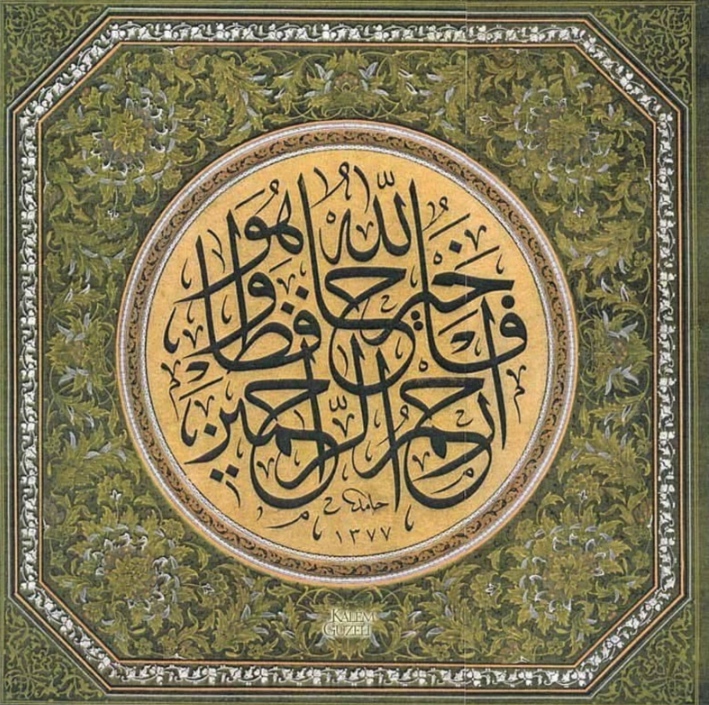 فالله خير حافظا وهو أرحم الراحمين
حامد
١٣٧٧
KALEM
GÜZELİ